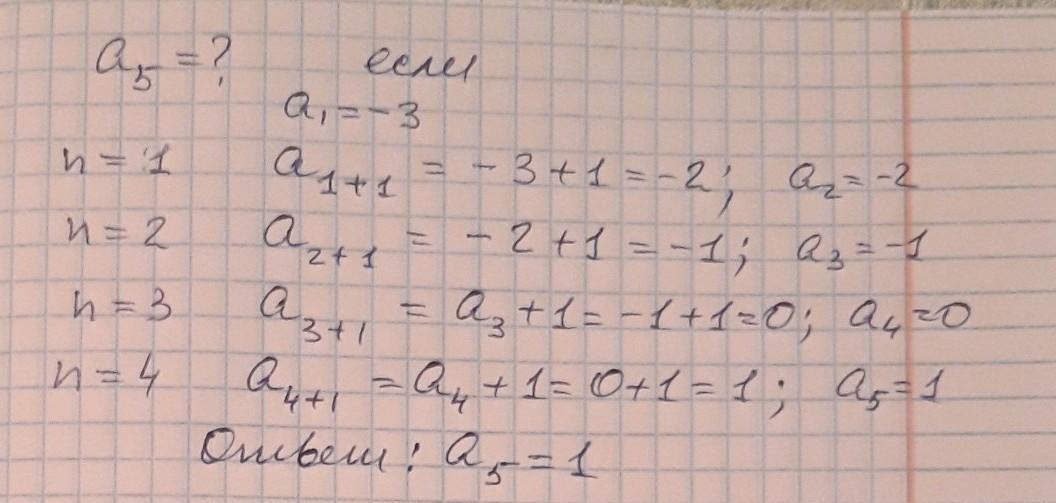 a₅ = ? если
a₁ = -3
n = 1 a₁₊₁ = -3 + 1 = -2; a₂ = -2
n = 2 a₂₊₁ = -2 + 1 = -1; a₃ = -1
n = 3 a₃₊₁ = a₃ + 1 = -1 + 1 = 0; a₄ = 0
n = 4 a₄₊₁ = a₄ + 1 = 0 + 1 = 1; a₅ = 1
Ответ: a₅ = 1